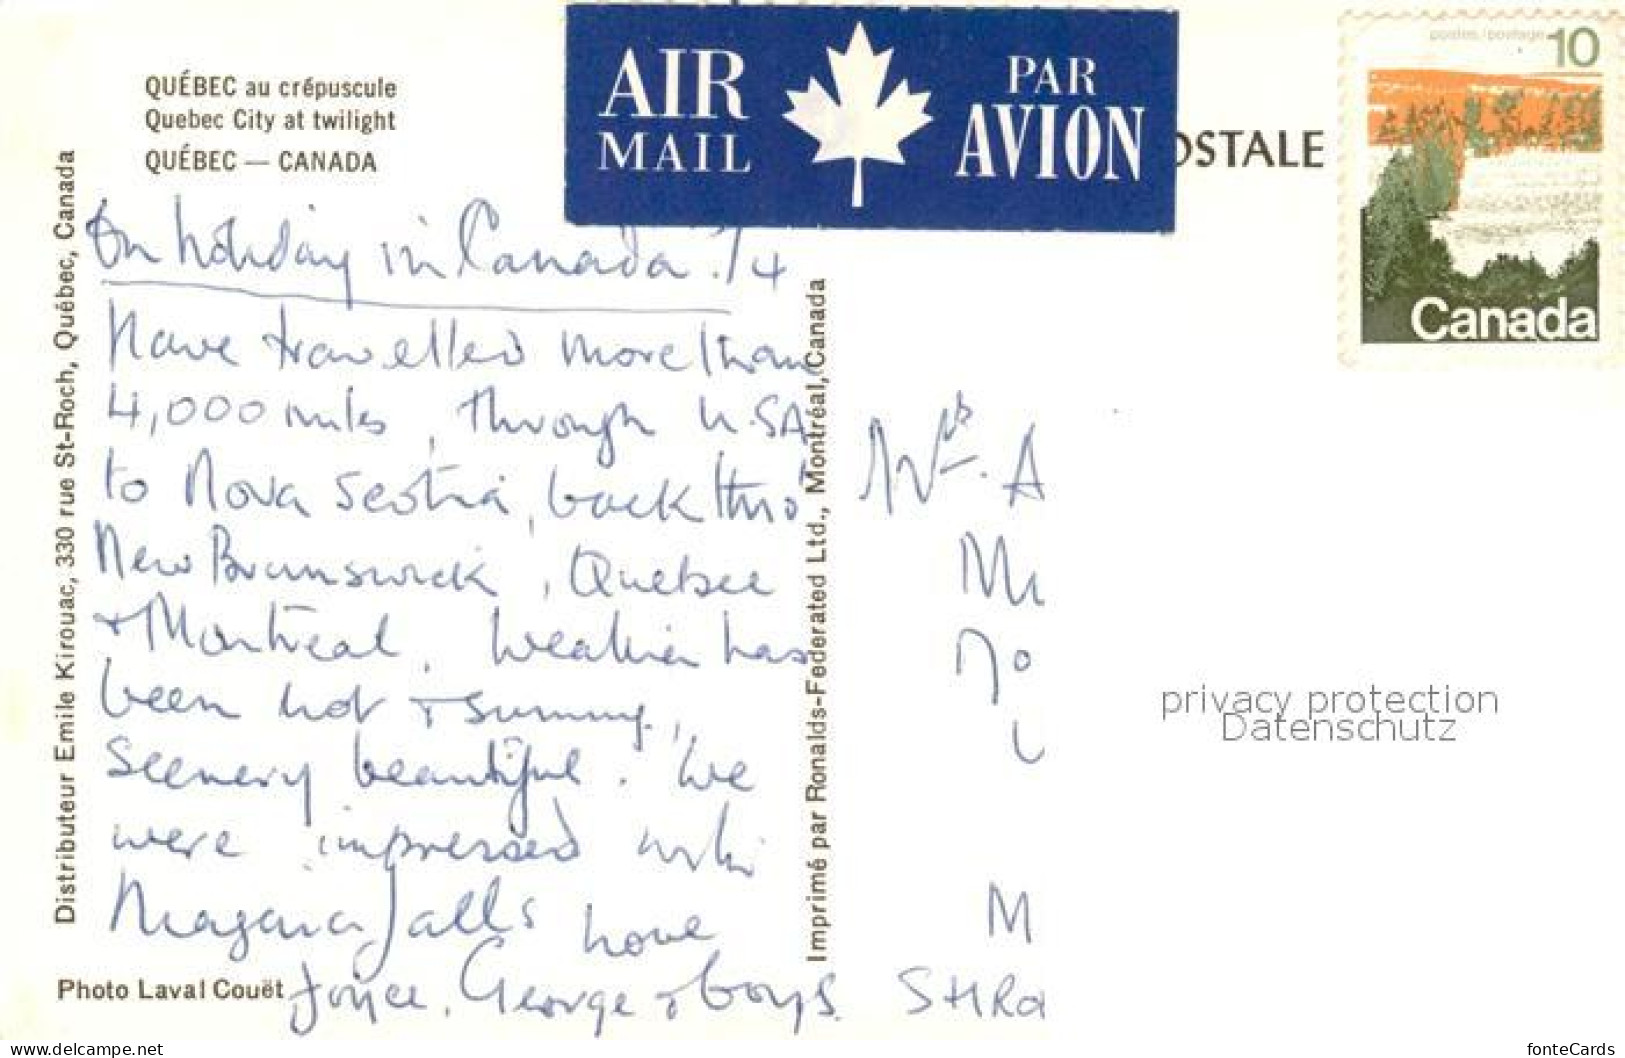 QUÉBEC au crépuscule
Quebec City at twilight
QUÉBEC — CANADA
AIR MAIL
PAR AVION
OSTALE
postes/postage 10
Canada
Distributeur Emile Kirouac, 330 rue St-Roch, Québec, Canada
On holiday in Canada
Have travelled more than
4,000 miles, through U.SA
to Nova Scotia, back thro'
New Brunswick, Quebec
+ Montreal. Weather has
been hot + sunny,
Scenery beautiful. We
were impressed with
Niagara falls love
Joyce, George + boys.
Photo Laval Couët
Imprimé par Ronalds-Federated Ltd., Montréal, Canada
A
M
privacy protection
Datenschutz
delcampe.net
fonteCards